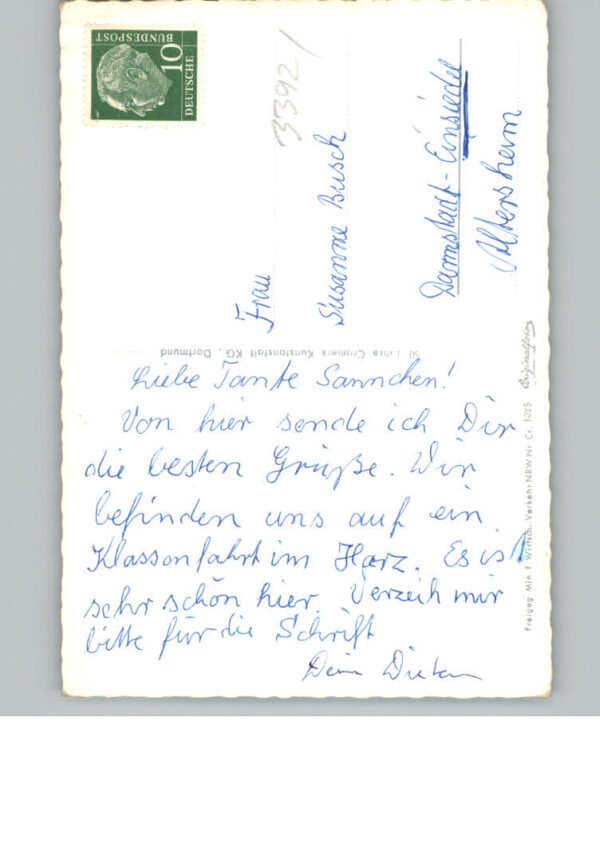 DEUTSCHE
BUNDESPOST
10
33921
Frau
Susanne Busch
Darmstadt-Einsiedel
Altersheim
Jahre Cramers Kunstanstalt KG., Dortmund
Liebe Tante Sannchen!
Von hier sende ich Dir
die besten Grüße. Wir
befinden uns auf ein
Klassenfahrt im Harz. Es ist
sehr schön hier. Verzeih mir
bitte für die Schrift
Dein
Originalfoto
Freigeg. Min. f. Wirtsch. Verkehr NRW Nr. Cr. 1025